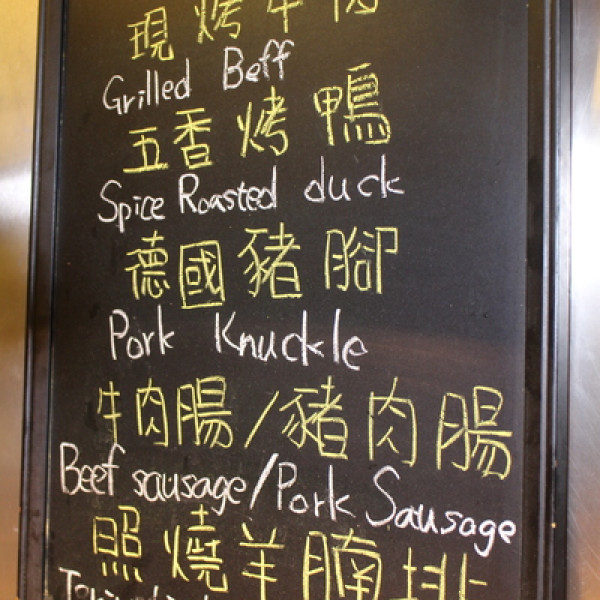 現烤牛肉
Grilled Beff
五香烤鴨
Spice Roasted duck
德國豬腳
Pork Knuckle
牛肉腸/豬肉腸
Beef sausage/Pork Sausage
照燒羊腩排